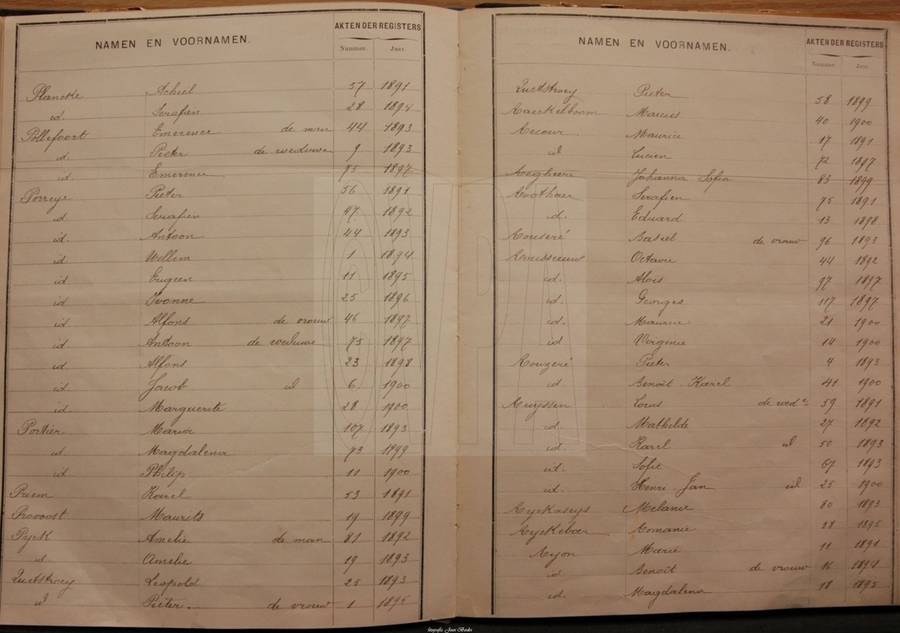 NAMEN EN VOORNAMEN. AKTEN DER REGISTERS
Nummer. Jaar.
Plancke Achiel 57 1891
id. Serafien 28 1894
Pollefoort Emerence de man 44 1893
id. Pieter de weduwe 9 1893
id. Emerence 75 1897
Porreye Pieter 56 1891
id Serafien 47 1892
id. Antoon 44 1893
id. Willem 1 1894
id Eugeen 11 1895
id Yvonne 25 1896
id. Alfons de vrouw 46 1897
id Antoon de weduwe 75 1897
id Alfons 23 1898
id Jacob id 6 1900
id Marguerite 28 1900
Portier Maria 107 1893
id Magdalena 73 1899
id Philip 11 1900
Preem Karel 53 1891
Provoost Maurits 19 1899
Pyck Amelie de man 81 1892
id Amelie 19 1893
Quetstroey Leopold 25 1893
id Pieter. de vrouw 1 1895
NAMEN EN VOORNAMEN. AKTEN DER REGISTERS
Nummer. Jaar.
Quetstroey Pieter 58 1899
Raeckelboom Marcus 40 1900
Recour Maurice 17 1891
id Lucien 72 1897
Johanna Sofia 83 1899
Roothaer Serafien 75 1891
id. Eduard 13 1898
Rouseré de vrouw 96 1893
Rousseeuw Octavie 44 1892
id. Aloïs 97 1897
id Georges 117 1897
id. Maurice 21 1900
id Virginie 14 1900
Rouzeré Pieter 4 1893
id Benoît Karel 41 1900
Ruyssen Louis de wede 59 1891
id. Mathilde 27 1892
id. Karel id 50 1893
id. Sofie 67 1893
id. Henri Jan id 25 1900
Ryckaseys Melanie 80 1893
Ryckebar Romanie 28 1895
Ryon Marie 11 1891
id Benoît de vrouw 16 1894
id. Magdalena 18 1895
fotografie Joset Boeden